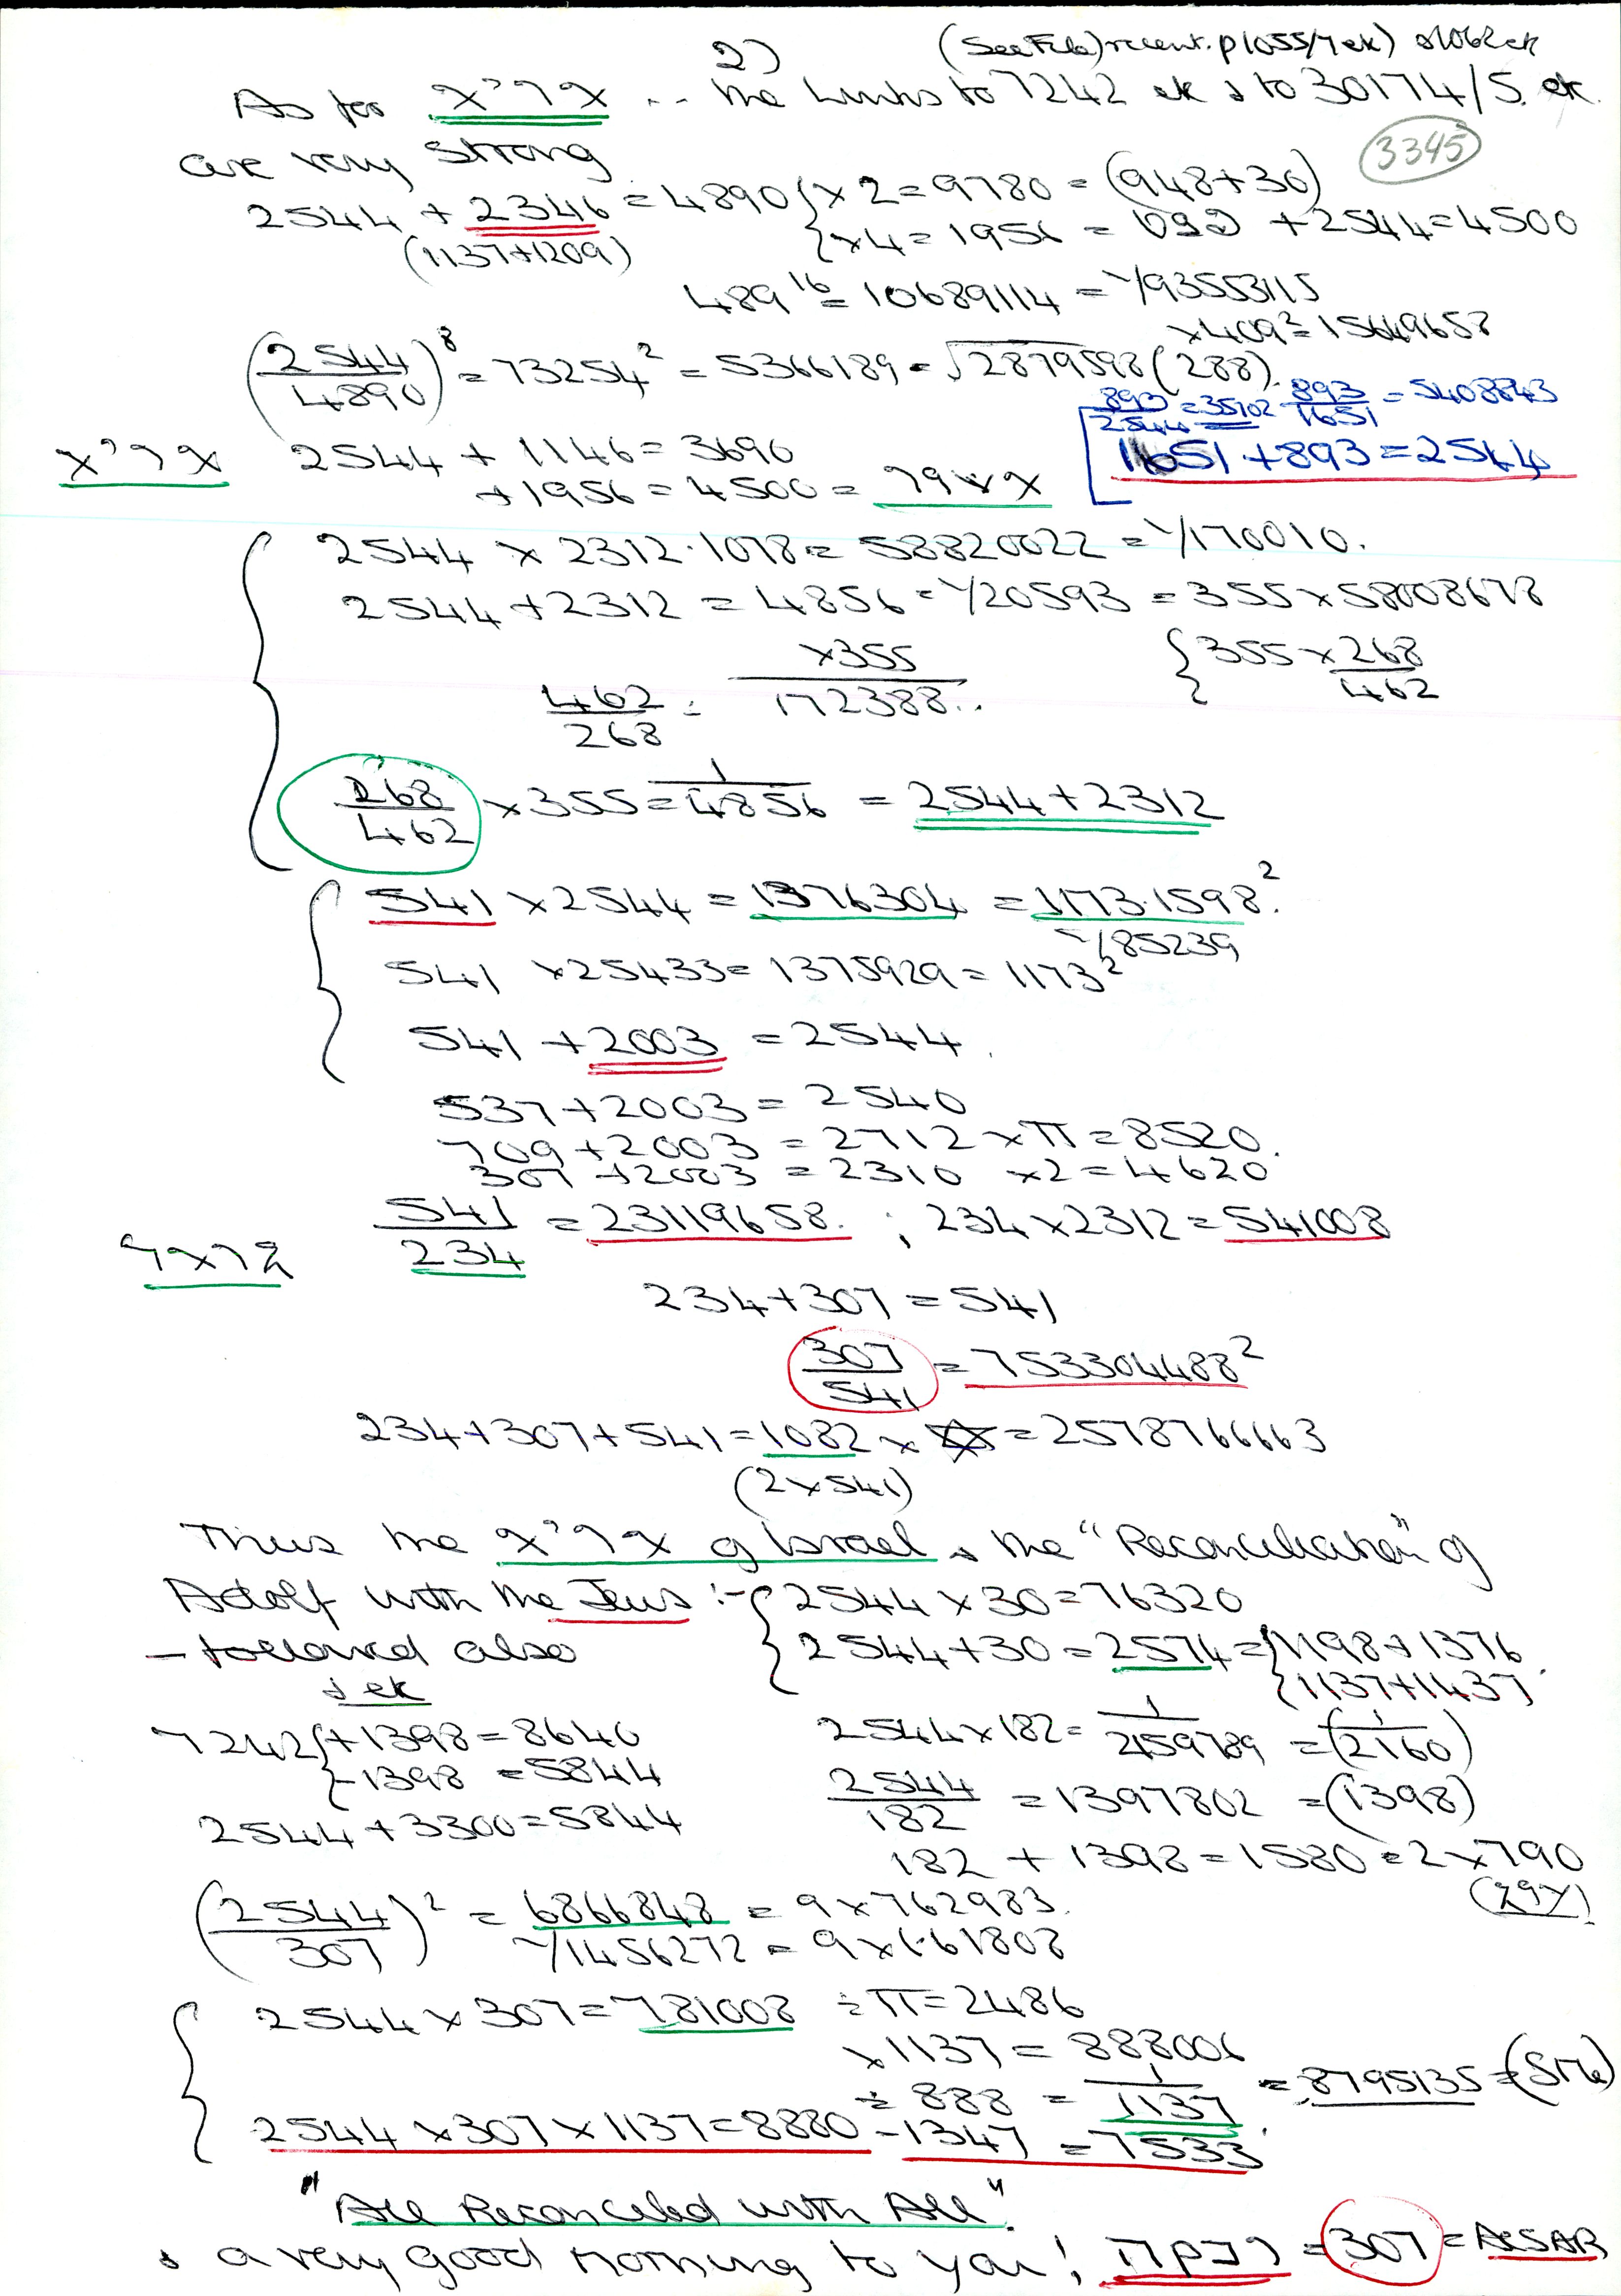 2) (See File) recent. p1055/7 etc) & 1062 etc
As for ... the Links to 7242 etc & to 30174/5. etc.
are very strong (3345)
2544 + 2346 = 4890 { x 2 = 9780 = (948+30)
(1137+1209) { x4 = 1956 = + 2544 = 4500
489^16 = 10689114 = 1/93553115
x409² = 15649658
(2544/4890)^8 = 73254² = 5366189 = √2879598 (288).
[893/2544 = 35102 893/1651 = 5408843
1651 + 893 = 2544
2544 + 1146 = 3690
+ 1956 = 4500 =
2544 x 2312.1078 = 58820022 = 1/170010.
2544 + 2312 = 4856 = 1/20593 = 355 x 58008678
462/268 = x355/172388.. {355 x 268/462
268/462 x 355 = 1/4856 = 2544 + 2312
541 x 2544 = 1376304 = 1173.1598²
= 1/85239
541 x 25433 = 1375929 = 1173²
541 + 2003 = 2544.
537 + 2003 = 2540
709 + 2003 = 2712 x π = 8520.
307 + 2003 = 2310 x2 = 4620
541/234 = 23119658. ; 234 x 2312 = 541008
234 + 307 = 541
307/541 = 753304488²
234 + 307 + 541 = 1082 x ✡ = 2578766663
(2 x 541)
Thus the of Israel & the "Reconciliation" of
Adolf with the Jews :- { 2544 x 30 = 76320
– followed also { 2544 + 30 = 2574 = { 1198 + 1376
& etc { 1137 + 1437.
7242 { + 1398 = 8640 2544 x 182 = 1/2159789 = (1/2160)
{ - 1398 = 5844 2544/182 = 1397802 = (1398)
2544 + 3300 = 5844
182 + 1398 = 1580 = 2 x 790
(2544/307)² = 6866848 = 9 x 762983.
1/1456272 = 9 x 1.61808
2544 x 307 = 781008 ÷ π = 2486
x 1137 = 888006
÷ 888 = 1/1137 = 8795135 =
2544 x 307 x 1137 = 8880 - 1347 = 7533
"All Reconciled with All".
& a very good morning to you! = 307 =